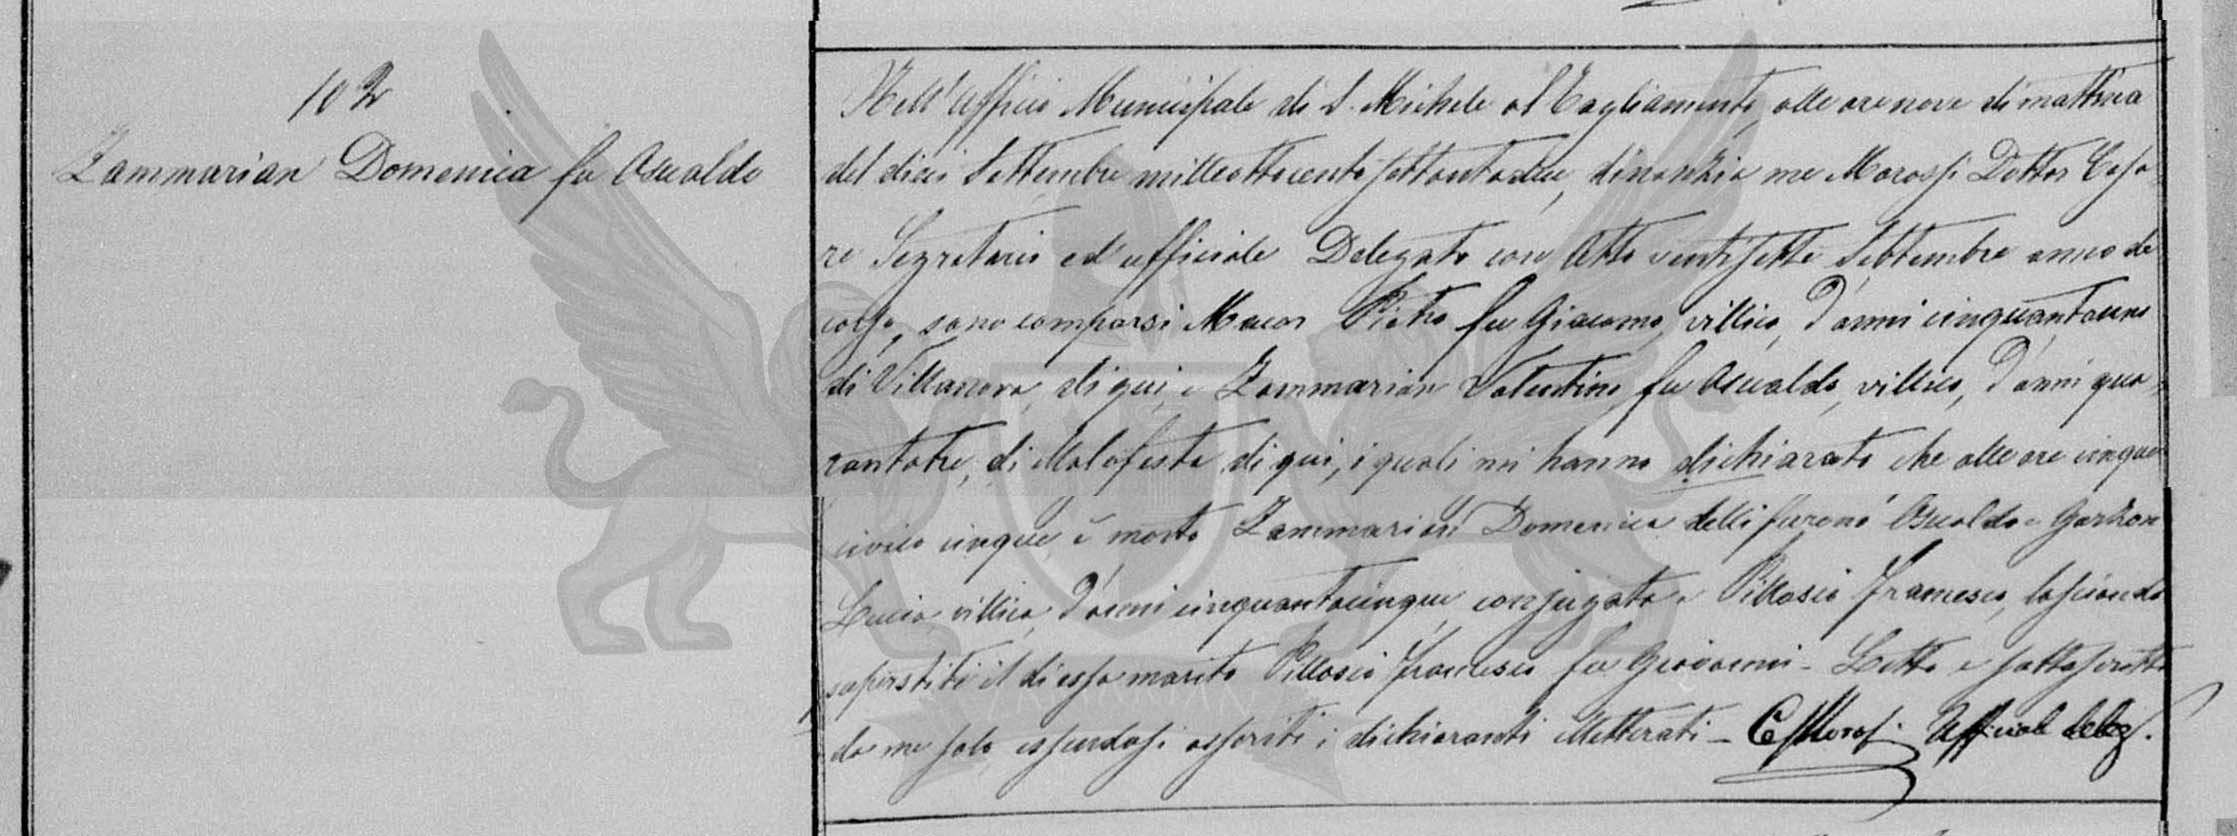 102
Zammarian Domenica fu Osualdo
Nell'ufficio Municipale di S. Michele al Tagliamento, alle ore nove di mattina
del dieci Settembre milleottocentosettantadue, dinanzi a me Morossi Dottor Cesa-
re Segretario ed ufficiale Delegato con Atto ventisette Settembre anno de-
corso, sono comparsi Macor Pietro fu Giacomo, villico, d'anni cinquantauno
di Villanova, di qui, e Zammarian Valentino fu Osualdo, villico, d'anni qua-
rantatre, di Malafesta di qui, i quali mi hanno dichiarato che alle ore cinque
civico cinque, è morta Zammarian Domenica delli furono Osualdo e Garzon
Lucia, villica, d'anni cinquantacinque, conjugata a Pillosio Francesco, lasciando
superstiti il di essa marito Pillosio Francesco fu Giovanni - Letto e sottoscritto
da me solo, essendosi asseriti i dichiaranti illetterati - C Moross. Ufficial deleg.